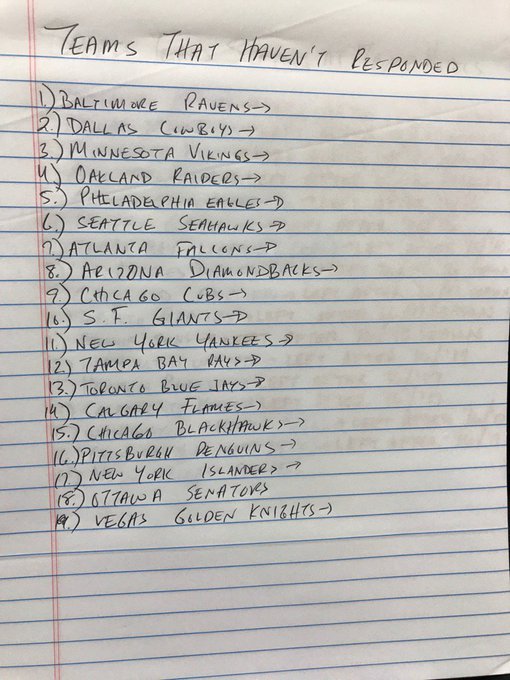 TEAMS THAT HAVEN'T RESPONDED
1.) BALTIMORE RAVENS→
2.) DALLAS COWBOYS→
3.) MINNESOTA VIKINGS→
4.) OAKLAND RAIDERS→
5.) PHILADELPHIA EAGLES→
6.) SEATTLE SEAHAWKS→
7.) ATLANTA FALCONS→
8.) ARIZONA DIAMONDBACKS→
9.) CHICAGO CUBS→
10.) S.F. GIANTS→
11.) NEW YORK YANKEES→
12.) TAMPA BAY RAYS→
13.) TORONTO BLUE JAYS→
14.) CALGARY FLAMES→
15.) CHICAGO BLACKHAWKS→
16.) PITTSBURGH PENGUINS→
17.) NEW YORK ISLANDERS→
18.) OTTAWA SENATORS
19.) VEGAS GOLDEN KNIGHTS→